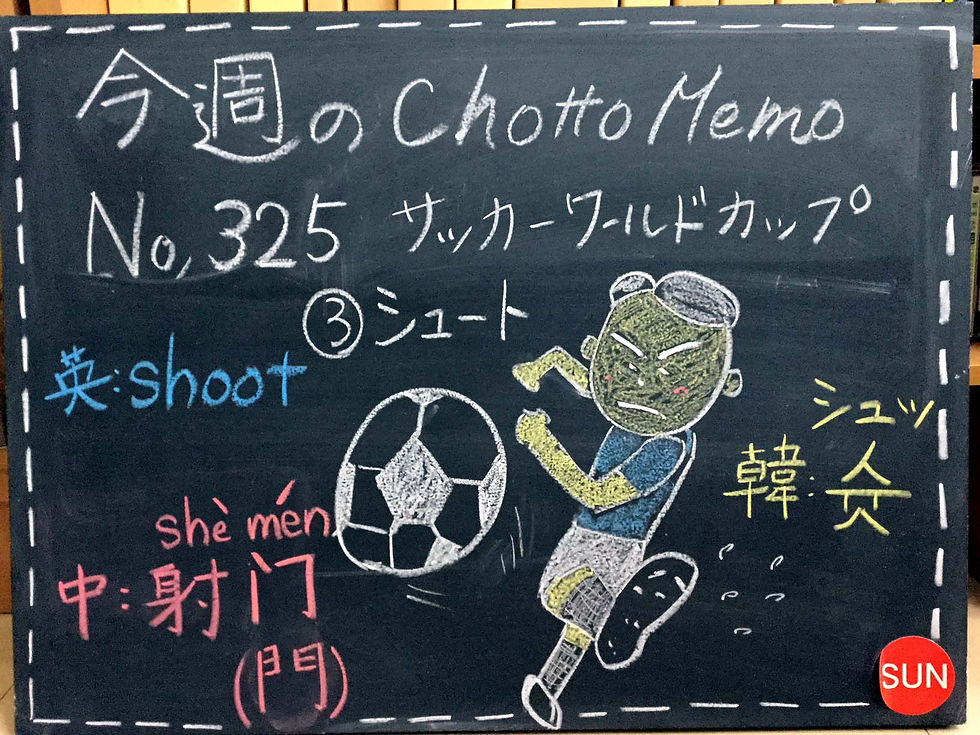 今週のChotto Memo
No,325 サッカーワールドカップ
③シュート
英:shoot
シュッ
韓:슛
shè mén
中:射门
(門)
SUN